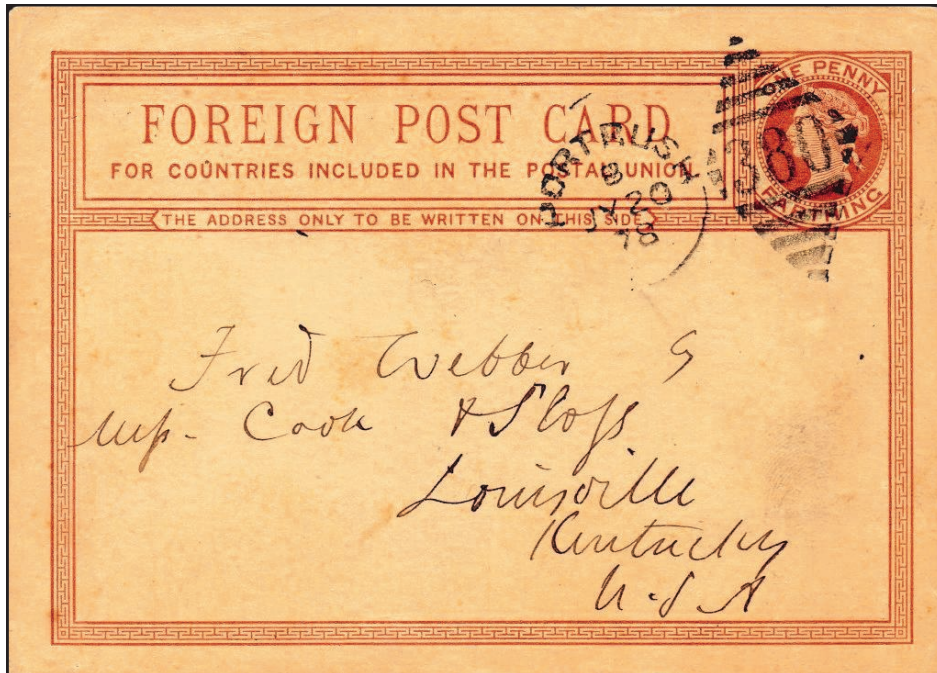 FOREIGN POST CARD
FOR COUNTRIES INCLUDED IN THE POSTAL UNION.
THE ADDRESS ONLY TO BE WRITTEN ON THIS SIDE
ONE PENNY
FARTHING
PORTRUSH
B
JY 20
78
380
Fred Webber
Cook & Sloss
Louisville
Kentucky
U.S.A